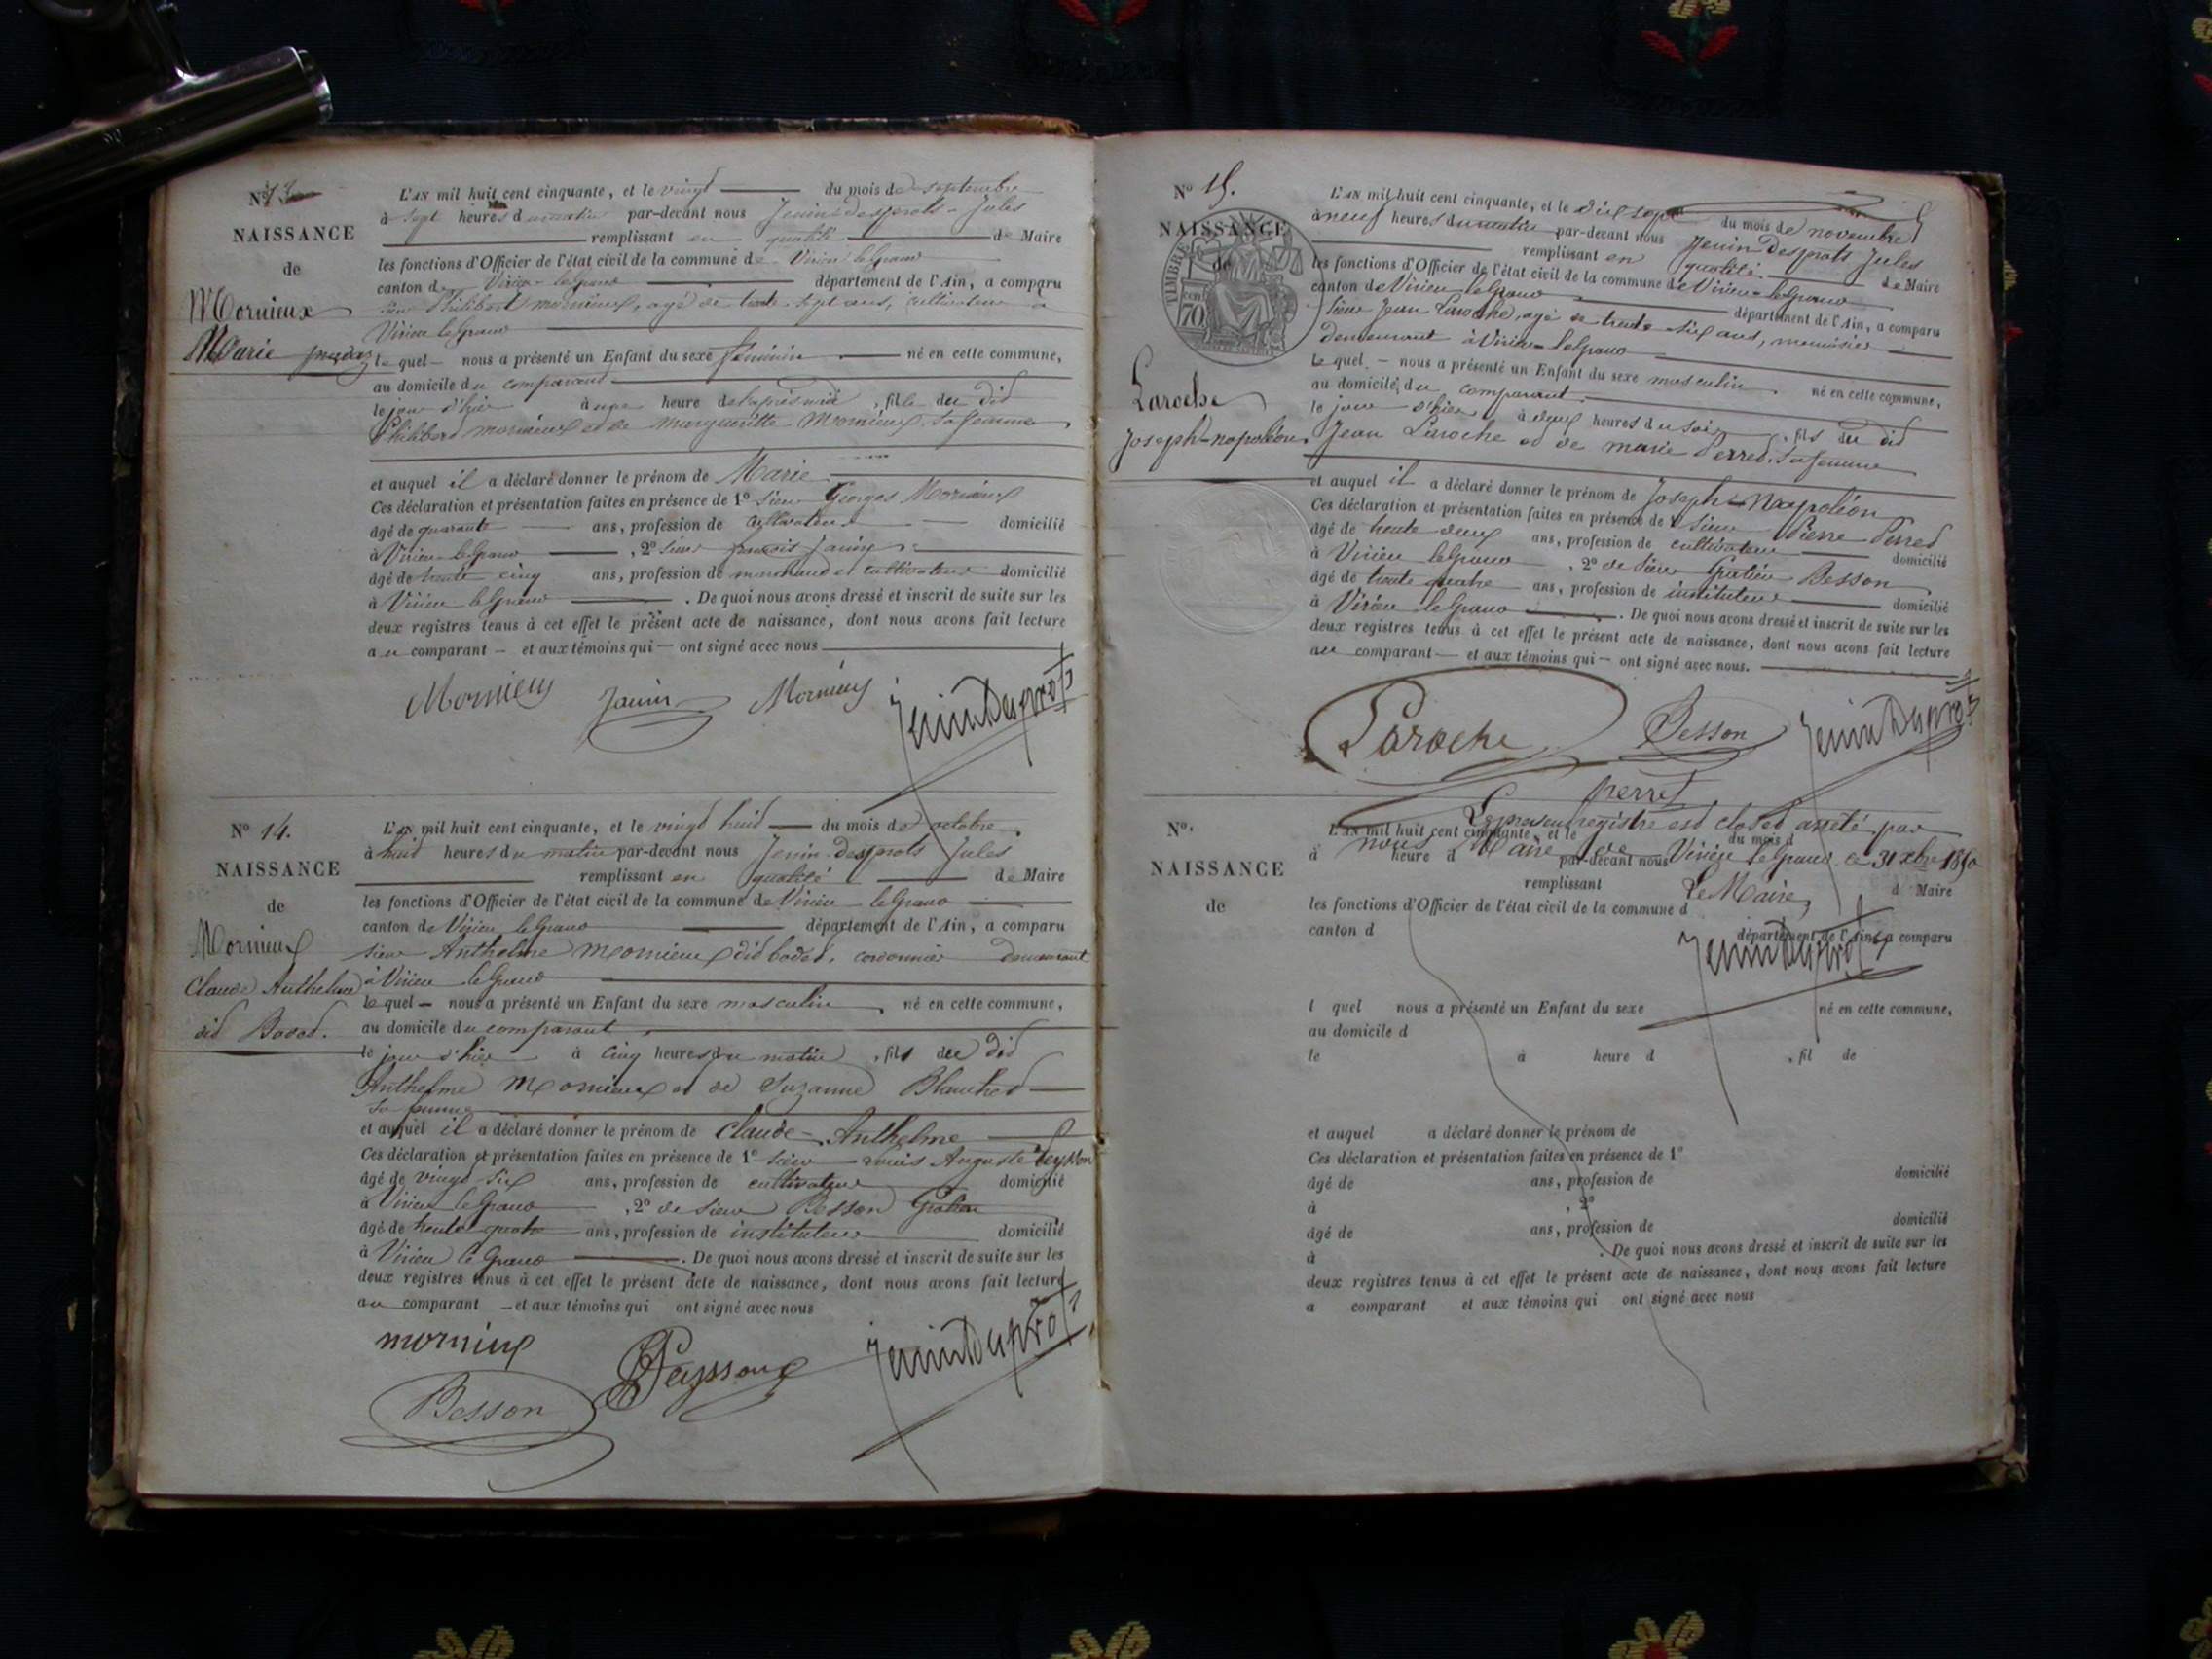 N° 13
NAISSANCE
de
Mornieux
Marie
L'AN mil huit cent cinquante, et le vingt du mois de septembre
à sept heures du matin par-devant nous Jenin-desprots Jules
remplissant en qualité de Maire
les fonctions d'Officier de l'état civil de la commune de Virieu leGrand
canton de Virieu-leGrand département de l'Ain, a comparu
sieur Philibert mornieux, agé de trente-sept ans, cultivateur à
Virieu leGrand
le quel nous a présenté un Enfant du sexe féminin né en cette commune,
au domicile du comparant
le jour d'hier à une heure de l'aprèsmidi, fille du dit
Philibert mornieux et de Margueritte Mornieux sa femme
et auquel il a déclaré donner le prénom de Marie
Ces déclaration et présentation faites en présence de 1° sieur Georges Mornieux
âgé de quarante ans, profession de cultivateur domicilié
à Virieu-leGrand, 2° sieur françois Janin
âgé de trente cinq ans, profession de marchand et cultivateur domicilié
à Virieu leGrand. De quoi nous avons dressé et inscrit de suite sur les
deux registres tenus à cet effet le présent acte de naissance, dont nous avons fait lecture
au comparant et aux témoins qui ont signé avec nous
Mornieux Janin Mornieux JeninDesprots
N° 14.
NAISSANCE
de
Mornieux
Claude Anthelme
dit Bodet.
L'AN mil huit cent cinquante, et le vingt huit du mois d'octobre
à huit heures du matin par-devant nous Jenin-desprots Jules
remplissant en qualité de Maire
les fonctions d'Officier de l'état civil de la commune de Virieu leGrand
canton de Virieu leGrand département de l'Ain, a comparu
sieur Anthelme Mornieux dit bodet, cordonnier demeurant
à Virieu leGrand
le quel nous a présenté un Enfant du sexe masculin, né en cette commune,
au domicile du comparant,
le jour d'hier à cinq heures du matin, fils du dit
Anthelme Mornieux et de Suzanne Blanchet
sa femme
et auquel il a déclaré donner le prénom de Claude-Anthelme
Ces déclaration et présentation faites en présence de 1° sieur Louis Auguste Peysson
âgé de vingt six ans, profession de cultivateur domicilié
à Virieu leGrand, 2° de sieur Besson Gratien
âgé de trente quatre ans, profession de instituteur domicilié
à Virieu le Grand. De quoi nous avons dressé et inscrit de suite sur les
deux registres tenus à cet effet le présent acte de naissance, dont nous avons fait lecture
au comparant et aux témoins qui ont signé avec nous
mornieux Peysson JeninDesprots
Besson
N° 15.
NAISSANCE
de
TIMBRE
70
Laroche
Joseph-napoléon
L'AN mil huit cent cinquante, et le dix sept du mois de novembre
à neuf heures du matin par-devant nous Jenin Desprots Jules
remplissant en qualité de Maire
les fonctions d'Officier de l'état civil de la commune de Virieu-leGrand
canton de Virieu-leGrand département de l'Ain, a comparu
sieur Jean Laroche, agé de trente-six ans, menuisier
demeurant à Virieu-leGrand
le quel nous a présenté un Enfant du sexe masculin né en cette commune,
au domicile du comparant
le jour d'hier à deux heures du soir, fils du dit
Jean Laroche et de marie Perret, sa femme
et auquel il a déclaré donner le prénom de Joseph-Napoléon
Ces déclaration et présentation faites en présence de 1° sieur Pierre Perret
âgé de trente deux ans, profession de cultivateur domicilié
à Virieu leGrand, 2° de sieur Gratien Besson
âgé de trente quatre ans, profession de instituteur domicilié
à Virieu-leGrand. De quoi nous avons dressé et inscrit de suite sur les
deux registres tenus à cet effet le présent acte de naissance, dont nous avons fait lecture
au comparant et aux témoins qui ont signé avec nous.
Laroche Besson JeninDesprots
perret
Le présent registre est clos et arrêté par
nous Maire de Virieu leGrand ce 31 xbre 1850
Le Maire,
JeninDesprots
N°.
NAISSANCE
de
L'AN mil huit cent cinquante, et le du mois d
à heure d par-devant nous
remplissant d Maire
les fonctions d'Officier de l'état civil de la commune d
canton d département de l'Ain, a comparu
l quel nous a présenté un Enfant du sexe né en cette commune,
au domicile d
le à heure d , fil de
et auquel a déclaré donner le prénom de
Ces déclaration et présentation faites en présence de 1°
âgé de ans, profession de domicilié
à , 2°
âgé de ans, profession de domicilié
à . De quoi nous avons dressé et inscrit de suite sur les
deux registres tenus à cet effet le présent acte de naissance, dont nous avons fait lecture
a comparant et aux témoins qui ont signé avec nous